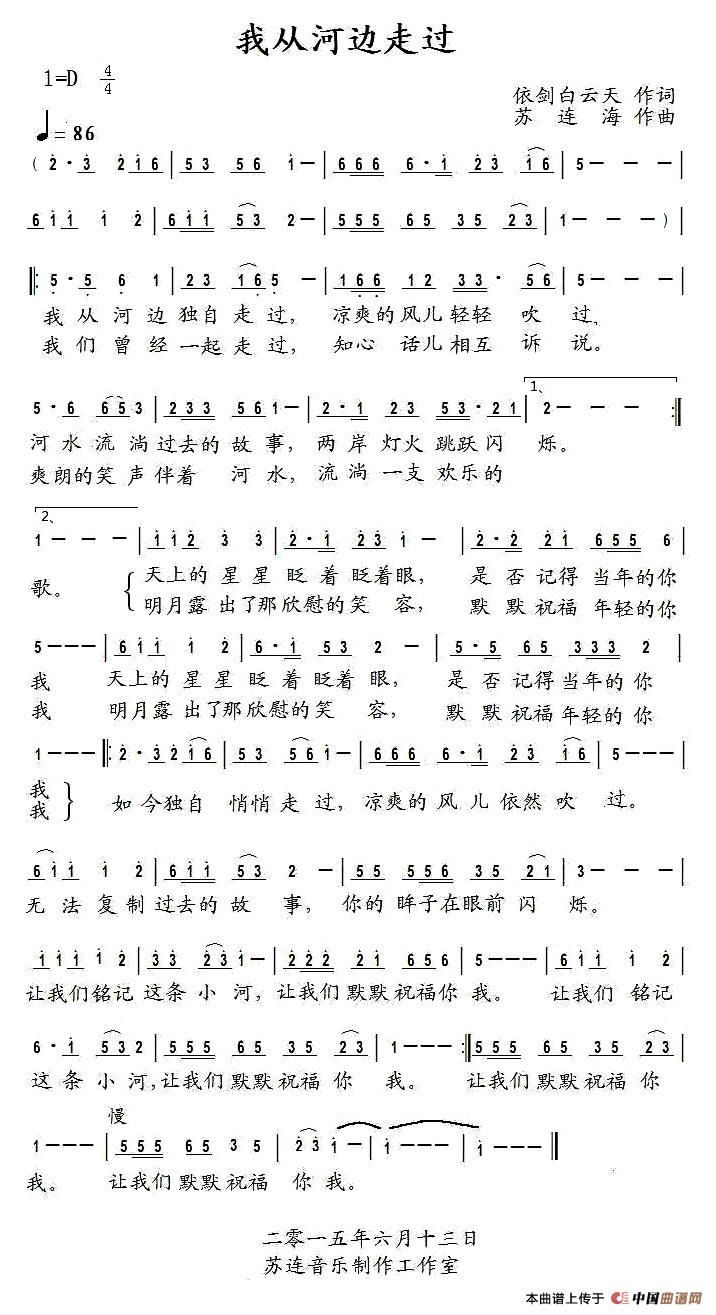 我从河边走过
1=D 4/4
依剑白云天 作词
♩= 86
苏 连 海 作曲
( 2·3 216 | 53 56 1 — | 666 6·1 23 16 | 5 — — |
611 1 2 | 611 53 2 — | 555 65 35 23 | 1 — — )
‖: 5·5 6 1 | 23 16 5 | 166 12 33· 56 |
我从河边独自走过，凉爽的风儿轻轻 吹 过，
我们曾经一起走过，知心 话儿相互 诉 说。
1、
5·6 653 | 233 56 1 — | 2·2 23 53·21 | 2 — — :‖
河水流淌过去的故 事，两岸 灯火 跳跃闪 烁。
爽朗的笑 声伴着 河水，流淌 一支 欢乐的
2、
1 — — — | 112 3 3 | 2·1 23 1 — | 2·2 23 655 6 |
歌。 天上的 星 星 眨 着 眨着眼， 是 否 记得 当年的你
明月露 出了那欣慰的笑 容， 默 默 祝福 年轻的你
5 — — — | 611 1 2 | 6·1 53 2 — | 5·5 65 333 2 |
我 天上的 星 星 眨 着 眨着 眼， 是 否 记得当年的 你
我 明月露 出了那欣慰的笑 容， 默 默祝福年轻的 你
1 — — — ‖: 2·3 216 | 53 56 1 — | 666 6·1 23 16 | 5 — — |
我 如今独自 悄悄 走 过，凉爽的 风 儿 依然 吹 过。
我
611 1 2 | 611 53 2 — | 555 65 35 21 | 3 — — |
无 法 复 制 过去的 故 事， 你的 眸子在眼前 闪 烁。
111 1 2 | 33 23 1 — | 222 23 12 656 | 5 — — — | 111 1 2 |
让我们铭记 这条 小 河，让我们默默祝福你 我。 让我们 铭记
6·1 532 | 555 65 35 23 | 1 — — — :‖ 555 65 35 23 |
这 条 小 河，让我们 默默 祝福 你 我。 让我们默默祝福 你
慢
1 — — — | 555 65 3 5 | 23 1 — | 1 — — | 1 — — ‖
我。 让我们默默祝福 你 我。
二零一五年六月十三日
苏连音乐制作工作室
本曲谱上传于 中国曲谱网